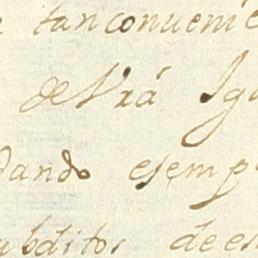 tan conueni
de Vrá Ig
dando exemp
ubditos de es